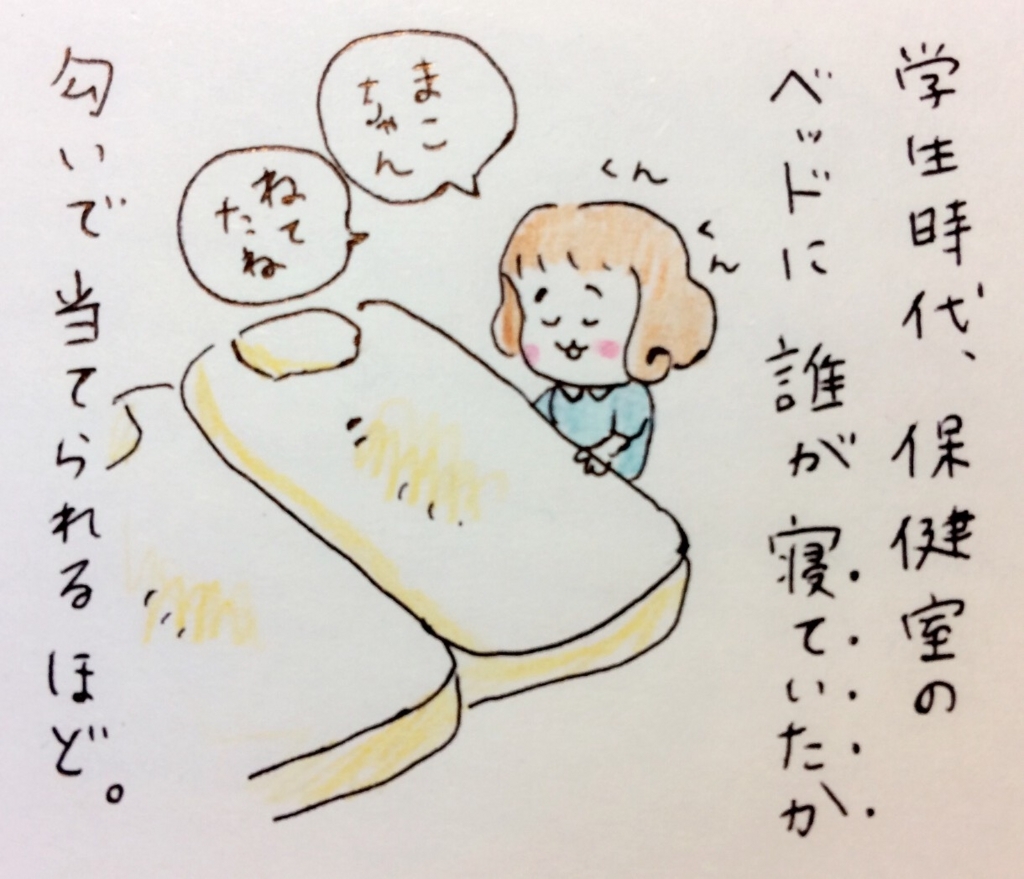 学生時代、保健室の
ベッドに誰が寝ていたか
くん
くん
まこ
ちゃん
ねて
たね
匂いで当てられるほど。